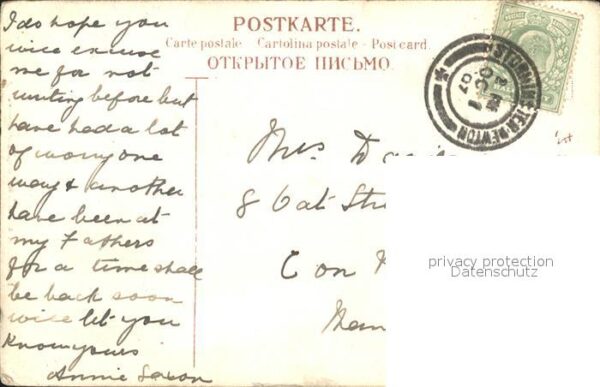 I do hope you
will excuse
me for not
writing before but
have had a lot
of worry one
way & another
have been at
my Fathers
for a time shall
be back soon
will let you
Know yours
Annie Saxon
POSTKARTE.
Carte postale - Cartolina postale - Post card.
ОТКРЫТОЕ ПИСЬМО.
STURMINSTER NEWTON
OC 1
07
Mrs
8 Oat Str
Con
privacy protection
Datenschutz